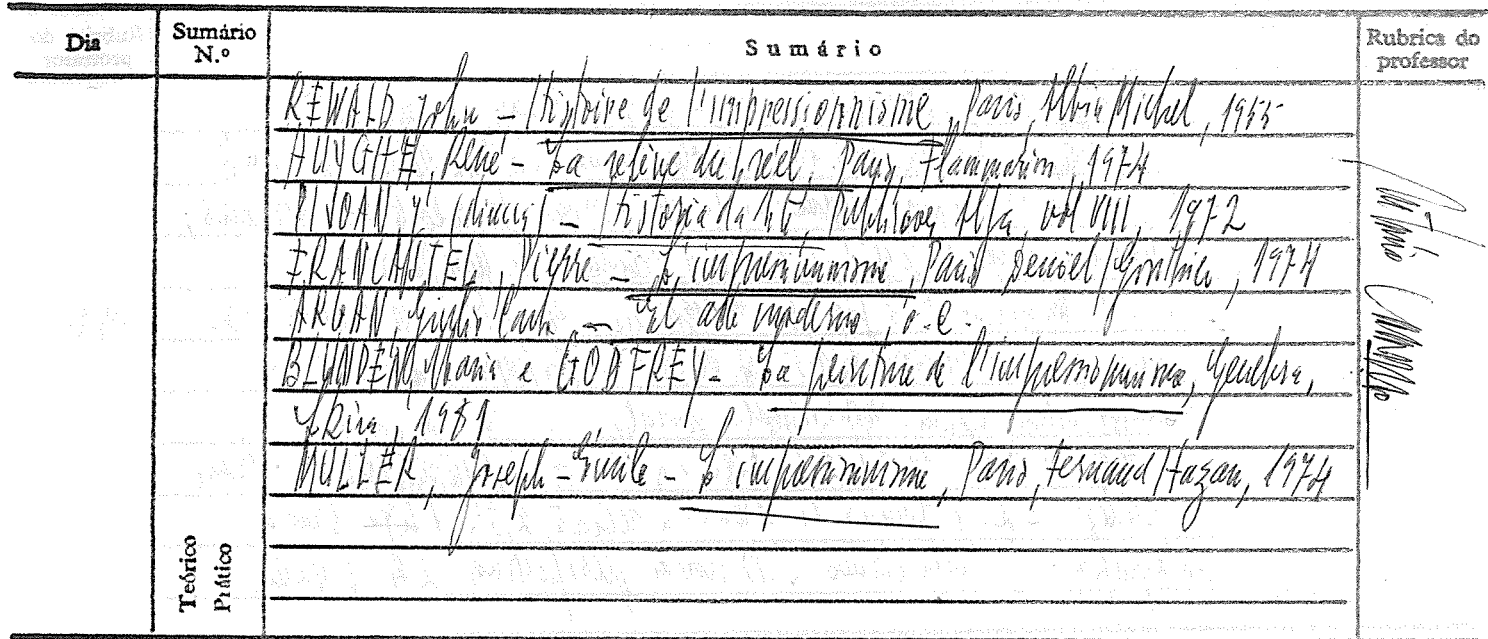 Dia
Sumário N.º
Sumário
Rubrica do professor
REWALD, John - Histoire de l'impressionnisme, Paris, Albin Michel, 1955
HUYGHE, René - La relève du réel, Paris, Flammarion, 1974
PIJOAN, J. - História da Arte, Publicações Alfa, vol VIII, 1972
FRANCASTEL, Pierre - L'impressionnisme, Paris, Denoel/Gonthier, 1974
ARGAN, Giulio Carlo - El arte moderno, o.c.
BLUNDEN, Maria e GODFREY - La peinture de l'impressionnisme, Genebra,
Skira, 1981
MULLER, Joseph-Émile - L'impressionnisme, Paris, Fernand Hazan, 1974
Teórico
Prático